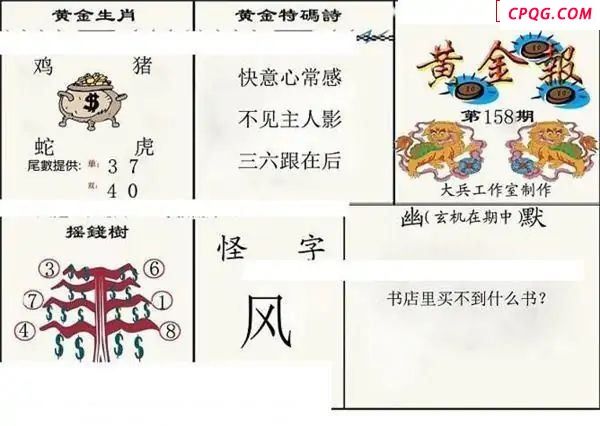 黄金生肖
鸡 猪
蛇 虎
尾數提供: 单: 3 7
双: 4 0
黄金特碼詩
快意心常感
不见主人影
三六跟在后
CPQG.COM
黄金報
第158期
大兵工作室制作
摇錢樹
③ ⑥
⑦ ①
④ ⑧
怪 字
风
幽(玄机在期中)默
书店里买不到什么书?